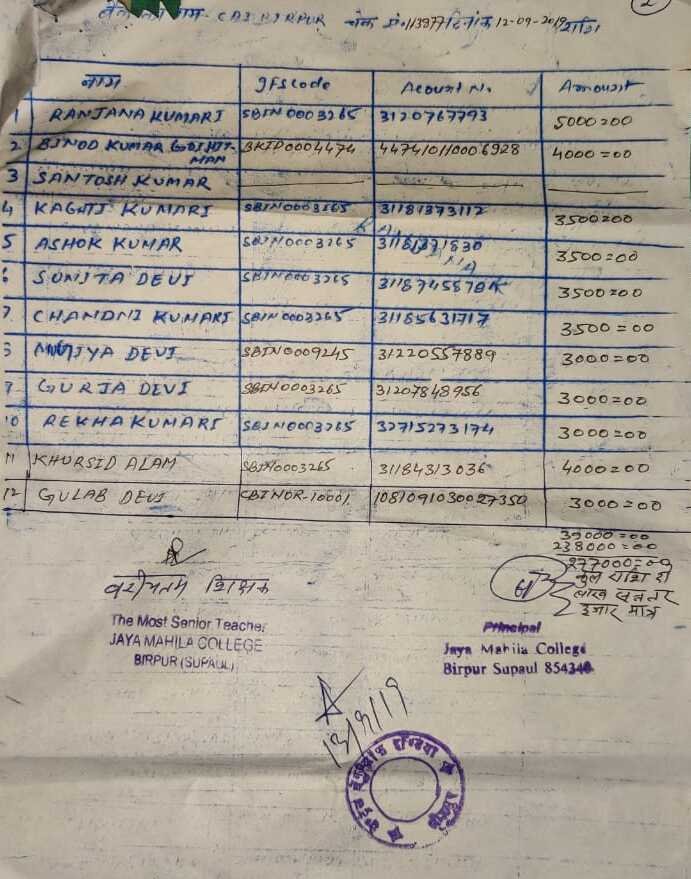 नाम CBI BIRPUR चेक सं०113977 दिनांक 12-09-2019 राशि
2
नाम IFS code Acount No. Amount
1 RANJANA KUMARI SBIN 0003265 31207677 93 5000=00
2 BINOD KUMAR GOIHIT- BKID0004474 447410110006928 4000=00
MAN
3 SANTOSH KUMAR
4 KAGHTI KUMARI SBIN0003265 31181373112 3500=00
5 ASHOK KUMAR SBIN0003265 3500=00
6 SUNITA DEVI SBIN0003265 3500=00
7. CHANDNI KUMARI SBIN0003265 31185631717 3500=00
8 DEVI SBIN0009245 31220557889 3000=00
9. GURIA DEVI SBIN0003265 31207848956 3000=00
10 REKHA KUMARI SBIN0003265 32715273174 3000=00
11 KHURSID ALAM SBIN0003265 31184313036 4000=00
12 GULAB DEVI CBINOR-10001. 108109103 0027350 3000=00
39000=00
238000=00
277000=00
कुल राशि दो
लाख सतत्तर
हजार मात्र
वरीयतम शिक्षक
The Most Senior Teacher
JAYA MAHILA COLLEGE
BIRPUR (SUPAUL)
Principal
Jaya Mahila College
Birpur Supaul 854340
13/9/19
इण्डिया